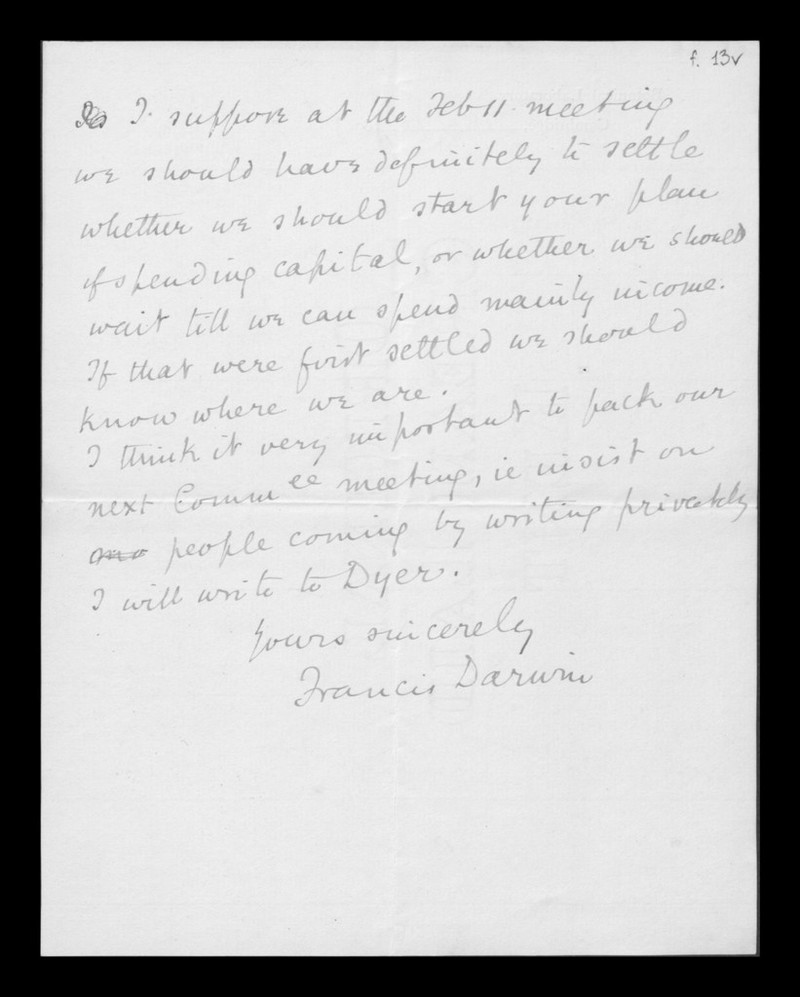 f. 13v
I suppose at the Feb 11 meeting
we should have definitely to settle
whether we should start your plan
of spending capital, or whether we should
wait till we can spend mainly income.
If that were first settled we should
know where we are.
I think it very important to pack our
next Comm^ee meeting, ie insist on
people coming by writing privately
I will write to Dyer.
Yours sincerely
Francis Darwin